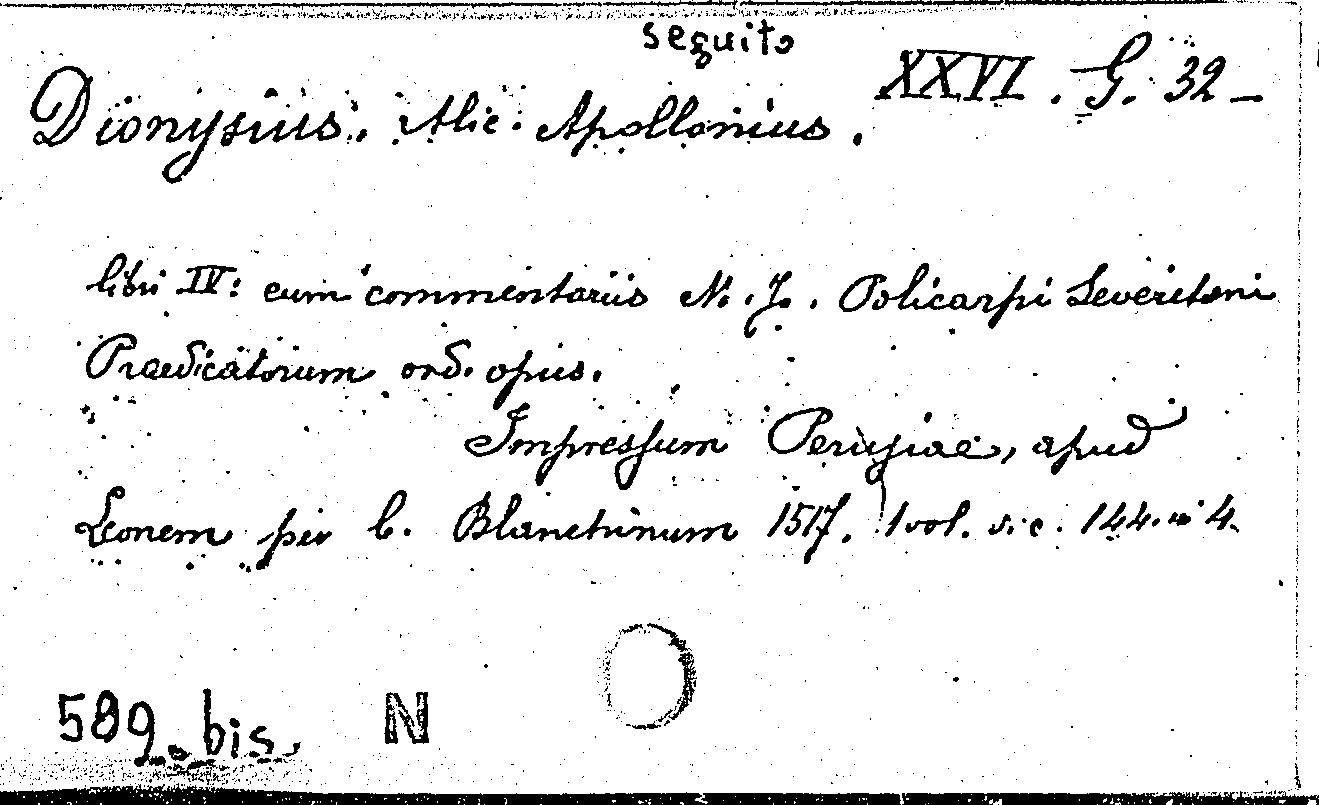 seguito
XXVI. G. 32 -
Dionysius. Alic. Apollonius.
libri IV: cum commentariis N. J. Policarpi Severitani
Praedicatorum ord. opus.
Impressum Perusiae, apud
Leonem per C. Blanchinum 1517. 1 vol. sic. 144. in 4.
589. bis.
N